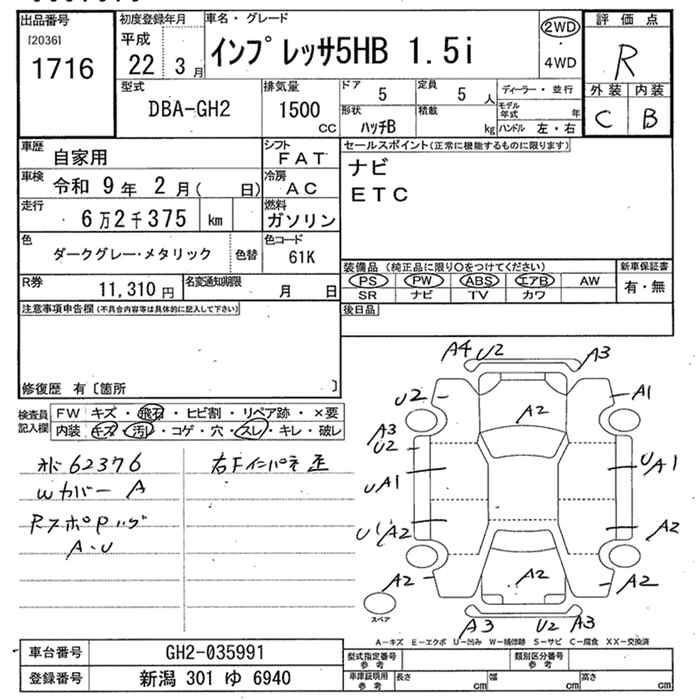 出品番号
[2036]
1716
初度登録年月
平成
22 3 月
車名・グレード
インプレッサ5HB 1.5i
2WD
4WD
評価点
R
外装 内装
C B
型式
DBA-GH2
排気量
1500
cc
ドア 5
定員 5 人
形状 ハッチB
積載 kg
ディーラー・並行
モデル年式 年
ハンドル 左・右
車歴 自家用
車検 令和 9年 2月( 日)
走行 6万2千375 km
色 ダークグレー・メタリック 色替
シフト FAT
冷房 AC
燃料 ガソリン
色コード 61K
R券 11,310円
名変通知期限 月 日
セールスポイント(正常に機能するものに限ります)
ナビ
ETC
装備品(純正品に限り○をつけてください)
PS PW ABS エアB AW
SR ナビ TV カワ
新車保証書
有・無
後日品
注意事項申告欄(不具合内容等は具体的に記入して下さい)
修復歴 有〔箇所 〕
検査員記入欄
FW キズ・飛石・ヒビ割・リペア跡・×要
内装 キズ・汚レ・コゲ・穴・スレ・キレ・破レ
メド 62376
Wカバー A
RスポPハゲ
A・U
右Fインパネ歪
A4 U2 A3
U2 A1
A2
A3
U2
UA1 UA1
U1 A2 A2
A2 A2 A2
A3 U2 A3
スペア
A-キズ E-エクボ U-凹み W-補修跡 S-サビ C-腐食 XX-交換済
車台番号 GH2-035991
登録番号 新潟 301 ゆ 6940
型式指定番号 参考
類別区分番号 参考
車庫証明用 参考
長さ cm 幅 cm 高さ cm